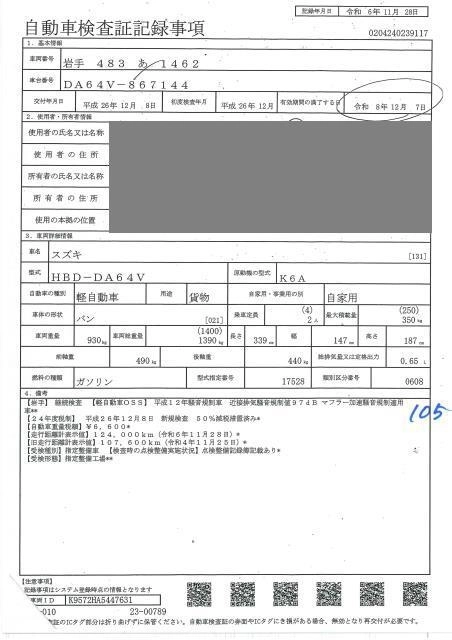 記録年月日 令和 6年11月28日
自動車検査証記録事項
0204240239117
1．基本情報
車両番号 岩手 483 あ 1462
車台番号 DA64V-867144
交付年月日 平成26年12月 8日 初度検査年月 平成26年12月 有効期間の満了する日 令和 8年12月 7日
2．使用者・所有者情報
使用者の氏名又は名称
使用者の住所
所有者の氏名又は名称
所有者の住所
使用の本拠の位置
3．車両詳細情報
車名 スズキ [131]
型式 HBD-DA64V 原動機の型式 K6A
自動車の種別 軽自動車 用途 貨物 自家用・事業用の別 自家用
車体の形状 バン [021] 乗車定員 (4) 2人 最大積載量 (250) 350kg
車両重量 930kg 車両総重量 (1400) 1390kg 長さ 339cm 幅 147cm 高さ 187cm
前軸重 490kg 後軸重 440kg 総排気量又は定格出力 0.65 L
燃料の種類 ガソリン 型式指定番号 17528 類別区分番号 0608
4．備考
[岩手] 継続検査 【軽自動車OSS】 平成12年騒音規制車 近接排気騒音規制値97dB マフラー加速騒音規制適用
車**
【24年度税制】 平成26年12月8日 新規検査 50%減税措置済み*
[自動車重量税額] ¥6,600*
[走行距離計表示値] 124,000km (令和6年11月28日)*
[旧走行距離計表示値] 107,600km (令和4年11月25日)*
[受検種別] 指定整備車 【検査時の点検整備実施状況】点検整備記録簿記載あり*
[受検形態] 指定整備工場**
105
【注意事項】
記録事項はシステム登録時点の情報となります
車両ID K9572HA5447631
-010 23-00789
証のICタグ部分は折り曲げずに保管ください。自動車検査証の券面やICタグにき損がある場合、無効となり再交付が必要です。